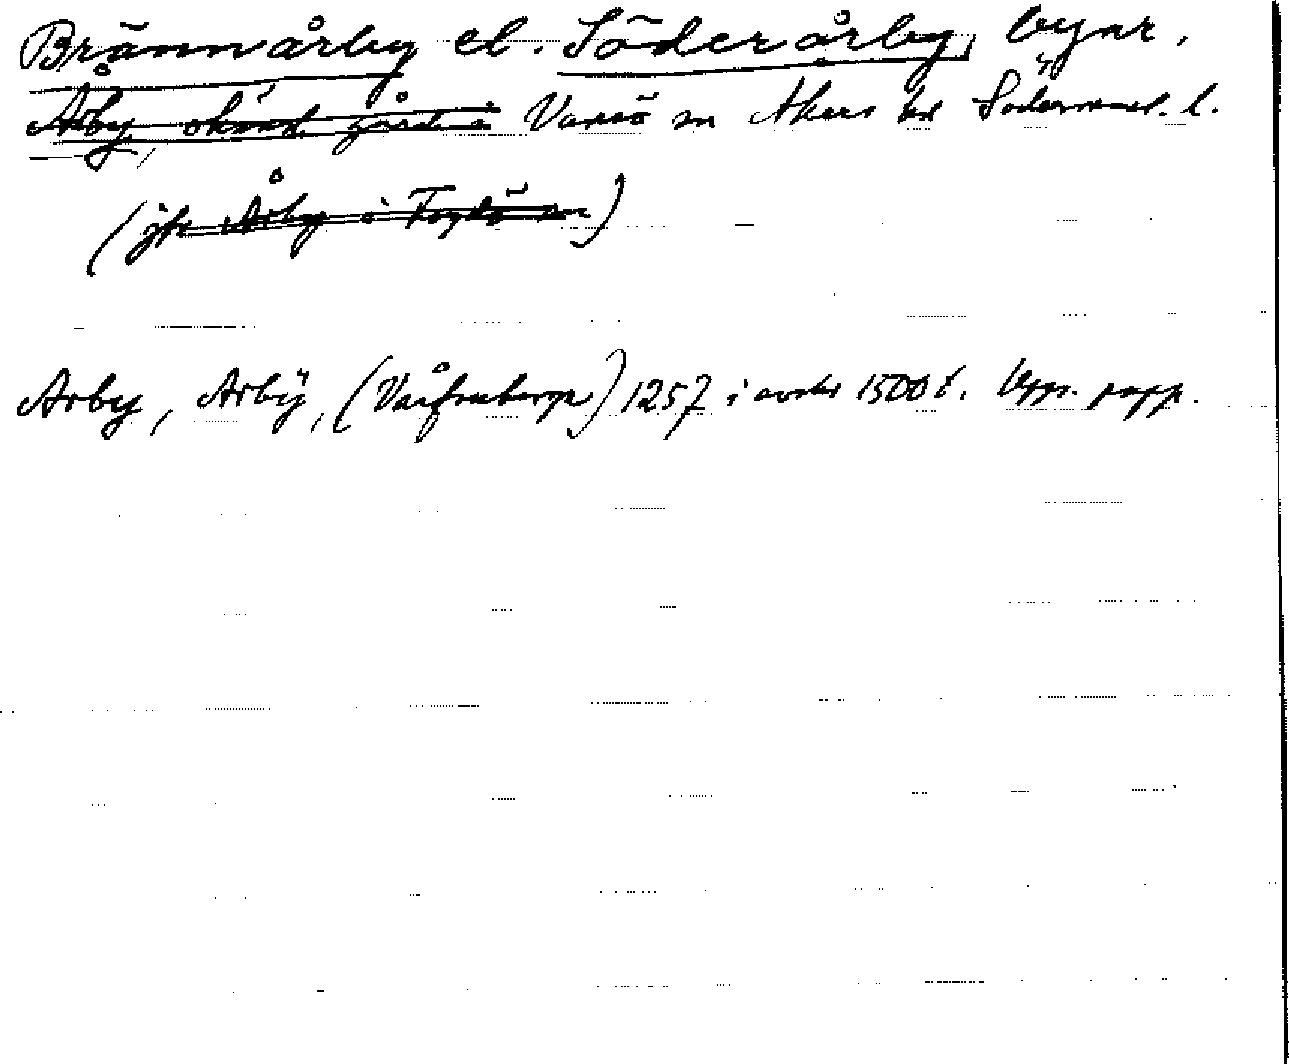 Brännårby el. Söderårby, byar,
Årby, okänd gård i Vansö sn Åkers hd Södermanl. l.
(jfr Årby i Toglö sn)
Arby, Arbÿ, (Vaifruberga) 1257 i avskr 1500 t. Upps. papp.